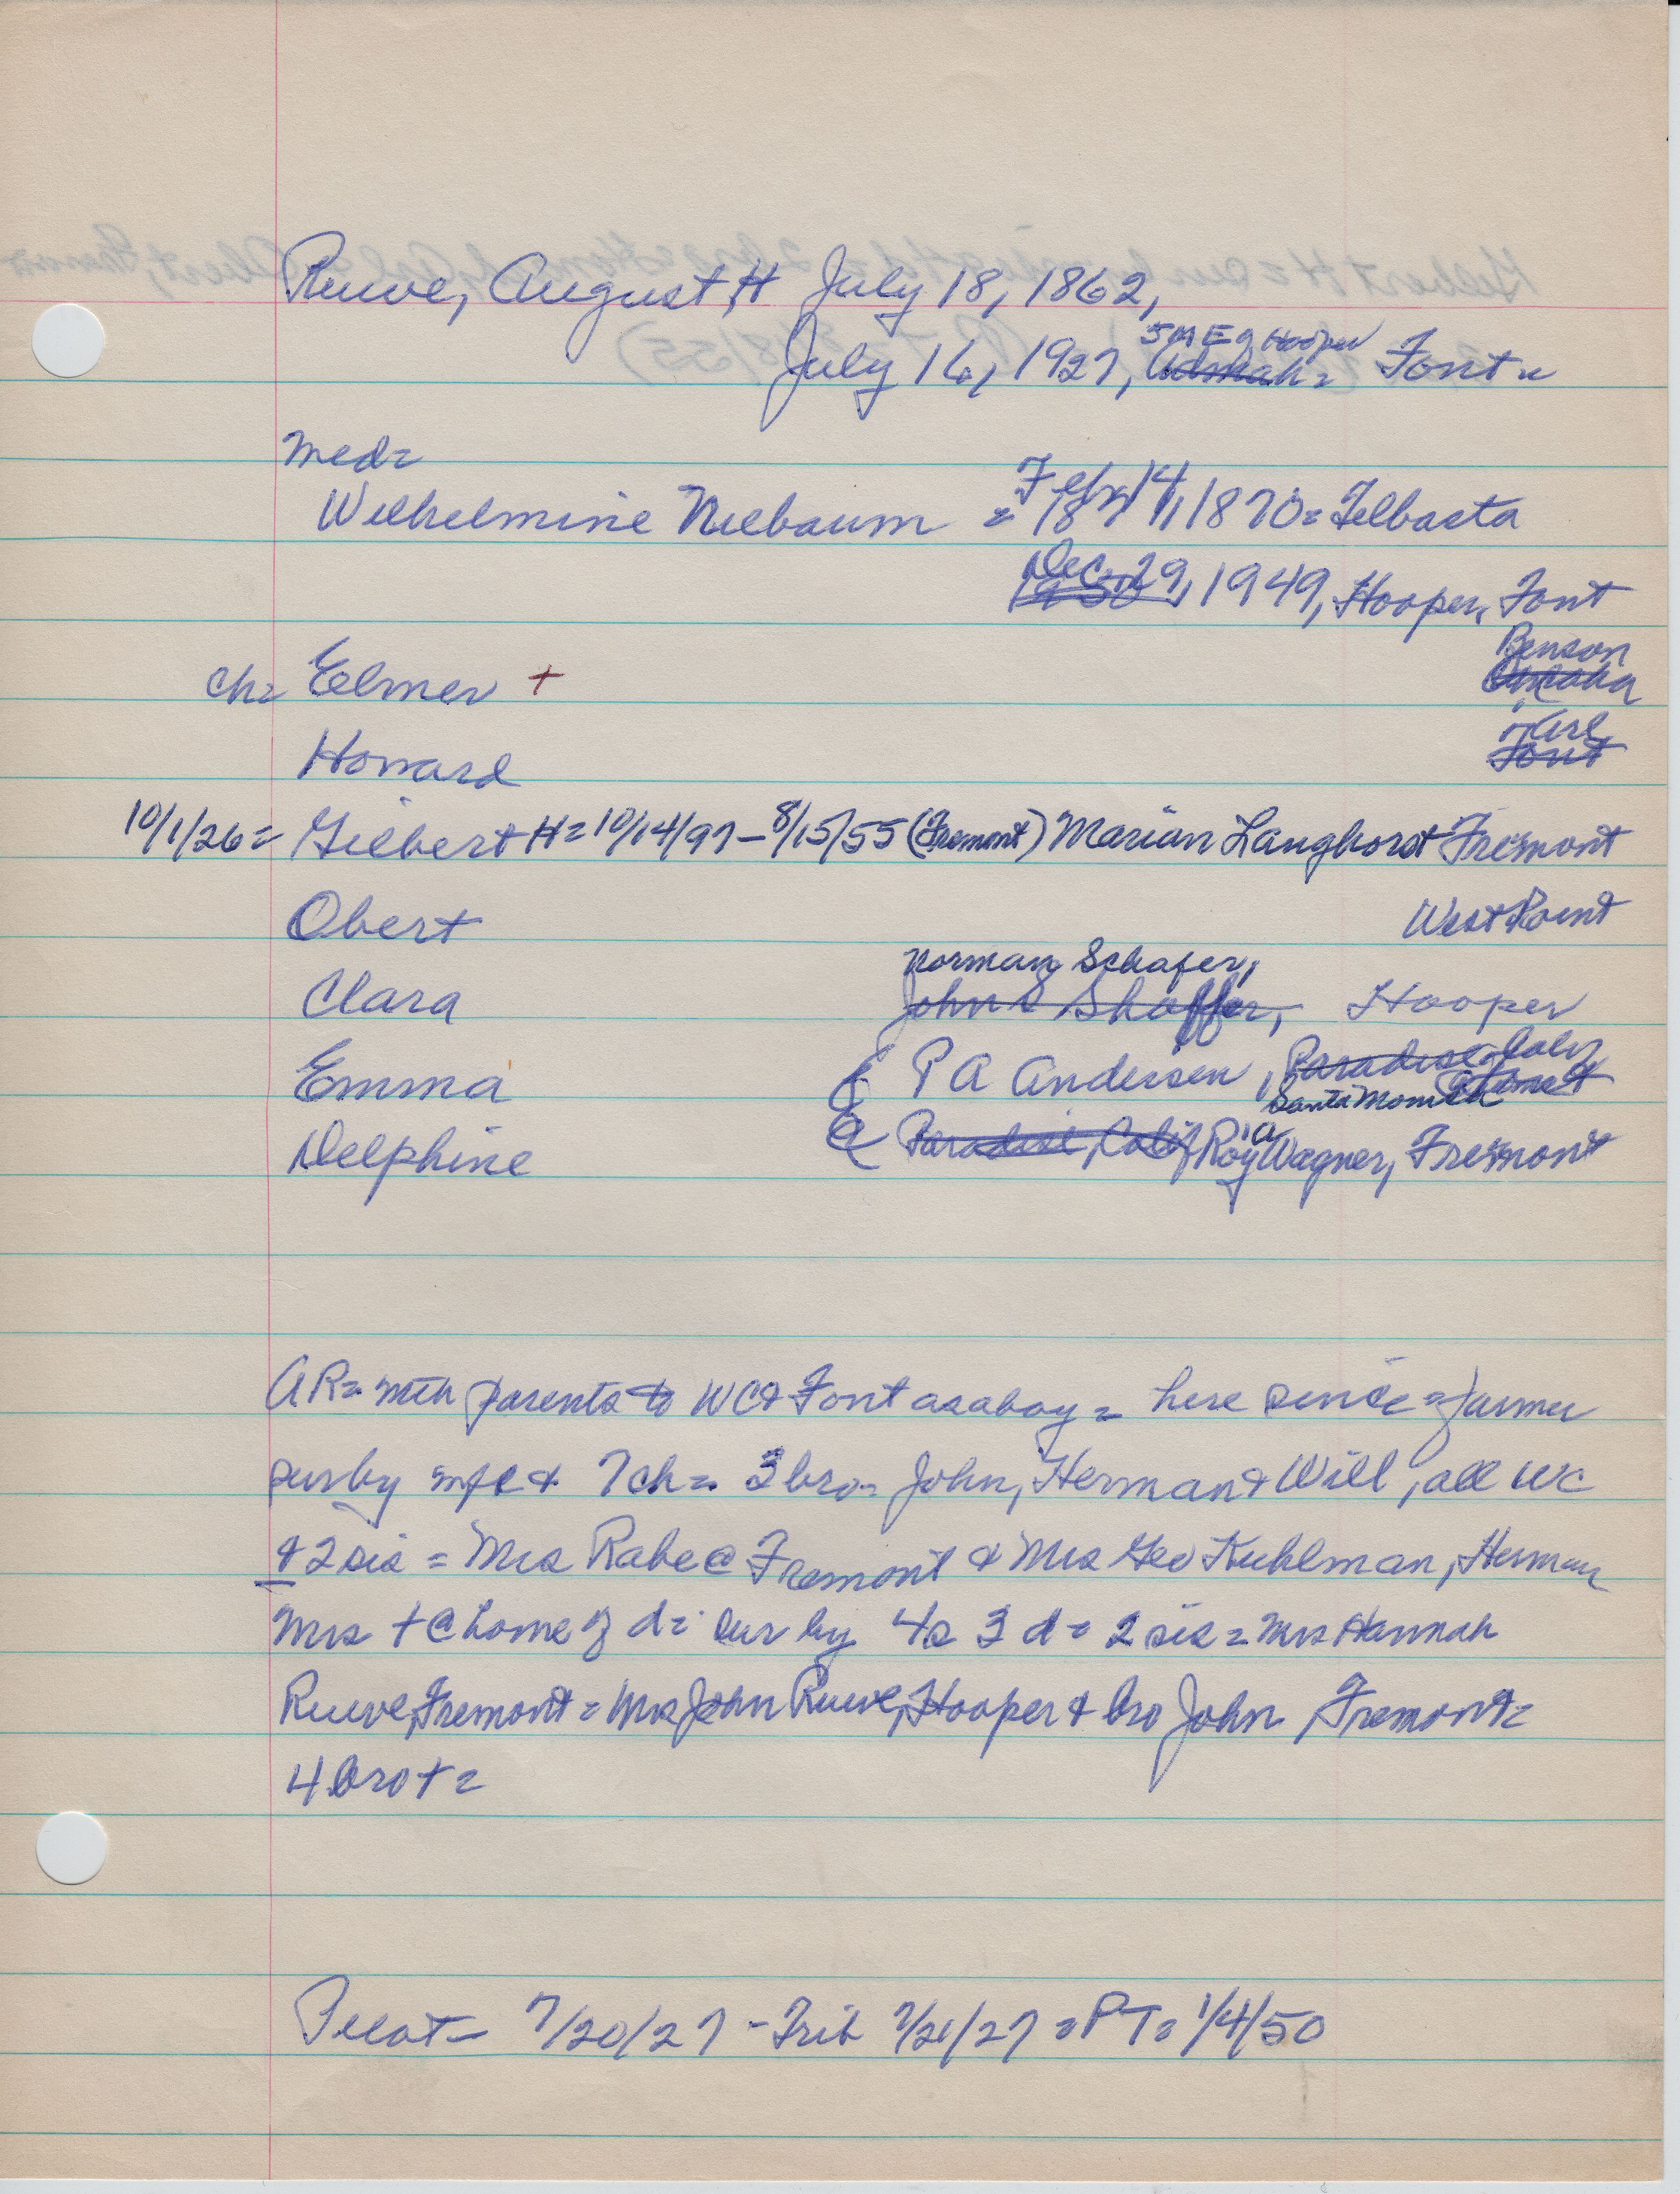 Ruwe, August, H July 18, 1862,
5 M E of Hooper
July 16, 1927, Font =
Med=
Wilhelmine Niebaum = Feb 14, 1870 = Telbasta
Dec 29, 1949, Hooper, Font
Benson
ch= Elmer + Omaha
Arl
Howard Font
10/1/26= Gilbert H= 10/14/97 – 8/15/55 (Fremont) Marian Langhorst Fremont
Obert West Point
Norman Schafer,
Clara John Shaffer, Hooper
Emma P A Andersen, Paradise Calif
Santa Monica
Delphine Paradise, Calif Roy Wagner, Fremont
AR= with parents to WC & Font as a boy = here since = farmer
sur by wife & 7 ch = 3 bro= John, Herman & Will, all WC
& 2 sis = Mrs Rabe @ Fremont & Mrs Geo Kuhlman, Herman
Mrs + @ home of d= sur by 4s 3 d= 2 sis = Mrs Hannah
Ruwe, Fremont = Mrs John Ruwe, Hooper & bro John, Fremont =
4 bro + =
Pilot = 7/20/27 - Trib 7/21/27 = PT= 1/4/50